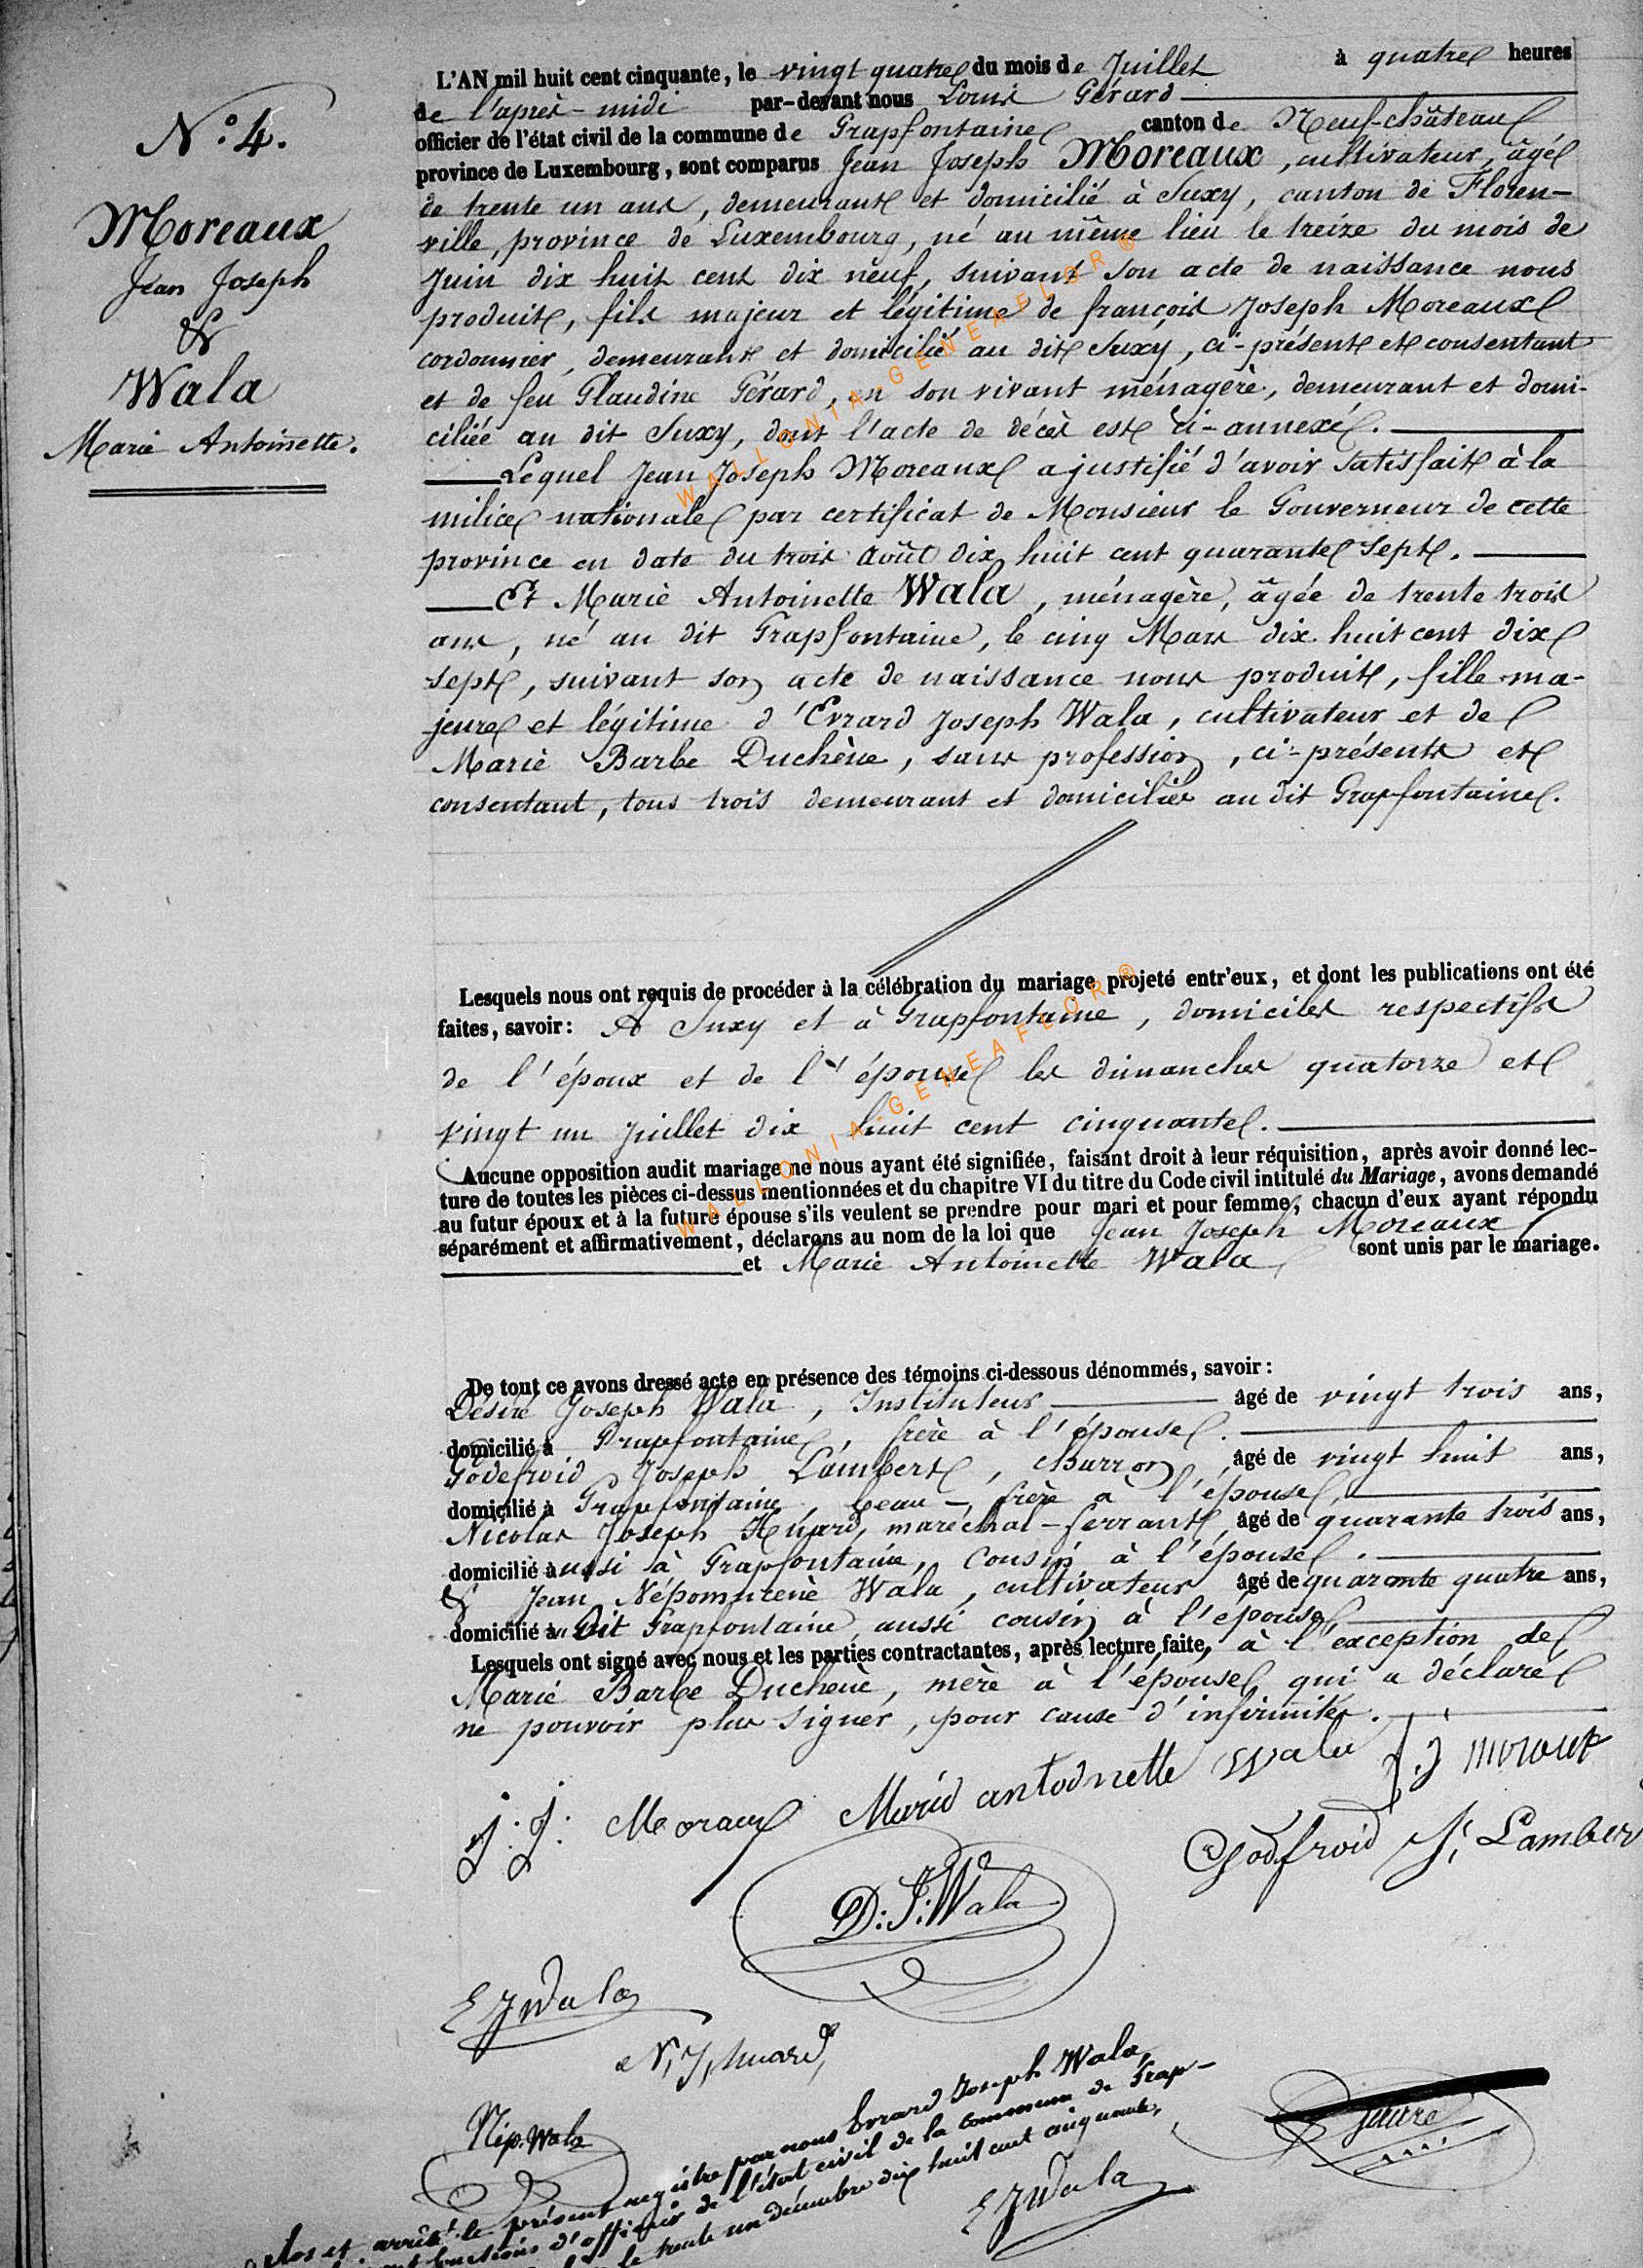 N.° 4.
Moreaux
Jean Joseph
&
Wala
Marie Antoinette.
L'AN mil huit cent cinquante, le vingt quatre du mois de Juillet à quatre heures
de l'après-midi par-devant nous Louis Gérard
officier de l'état civil de la commune de Grapfontaine canton de Neufchâteau
province de Luxembourg, sont comparus Jean Joseph Moreaux, cultivateur, âgé
de trente un ans, demeurant et domicilié à Suxy, canton de Floren-
ville, province de Luxembourg, né au même lieu le treize du mois de
Juin dix huit cent dix neuf, suivant son acte de naissance nous
produit, fils majeur et légitime de françois Joseph Moreaux
cordonnier, demeurant et domicilié au dit Suxy, ci-présent et consentant
et de feu Glaudine Gérard, en son vivant ménagère, demeurant et domi-
ciliée au dit Suxy, dont l'acte de décès est ci-annexé.
Lequel Jean Joseph Moreaux a justifié d'avoir satisfait à la
milice nationale par certificat de Monsieur le Gouverneur de cette
province en date du trois Août dix huit cent quarante sept.
Et Marie Antoinette Wala, ménagère, âgée de trente trois
ans, né au dit Grapfontaine, le cinq Mars dix huit cent dix
sept, suivant son acte de naissance nous produit, fille ma-
jeure et légitime d'Evrard Joseph Wala, cultivateur et de
Marie Barbe Duchène, sans profession, ci-présents et
consentant, tous trois demeurant et domiciliés au dit Grapfontaine.
Lesquels nous ont requis de procéder à la célébration du mariage projeté entr'eux, et dont les publications ont été
faites, savoir: A Suxy et à Grapfontaine, domiciles respectifs
de l'époux et de l'épouse les dimanches quatorze et
vingt un juillet dix huit cent cinquante.
Aucune opposition audit mariage ne nous ayant été signifiée, faisant droit à leur réquisition, après avoir donné lec-
ture de toutes les pièces ci-dessus mentionnées et du chapitre VI du titre du Code civil intitulé du Mariage, avons demandé
au futur époux et à la future épouse s'ils veulent se prendre pour mari et pour femme, chacun d'eux ayant répondu
séparément et affirmativement, déclarons au nom de la loi que Jean Joseph Moreaux
et Marie Antoinette Wala sont unis par le mariage.
De tout ce avons dressé acte en présence des témoins ci-dessous dénommés, savoir:
Désiré Joseph Wala, Instituteur âgé de vingt trois ans,
domicilié à Grapfontaine, frère à l'épouse.
Godefroid Joseph Lambert, charron, âgé de vingt huit ans,
domicilié à Grapfontaine, beau-frère à l'épouse,
Nicolas Joseph Huard, maréchal-ferrant, âgé de quarante trois ans,
domicilié aussi à Grapfontaine, cousin à l'épouse.
& Jean Népomucenè Wala, cultivateur âgé de quarante quatre ans,
domicilié au Dit Grapfontaine, aussi cousin à l'épouse
Lesquels ont signé avec nous et les parties contractantes, après lecture faite, à l'exception de
Marie Barbe Duchène, mère à l'épouse, qui a déclaré
ne pouvoir plus signer, pour cause d'infirmités.
J: J: Moraux Marie antodnette Wala f. j moraux
Godfroid J. Lambert
D: J: Wala
E J Wala
N, J, huard,
Nép. Wala
Gérard
Clos et arrêté le présent registre par nous Evrard Joseph Wala,
fonctions d'officier de l'état civil de la commune de Grap-
le trente un décembre dix huit cent cinquante,
E J Wala
WALLONIA-GENEAFLOR ®
WALLONIA-GENEAFLOR ®